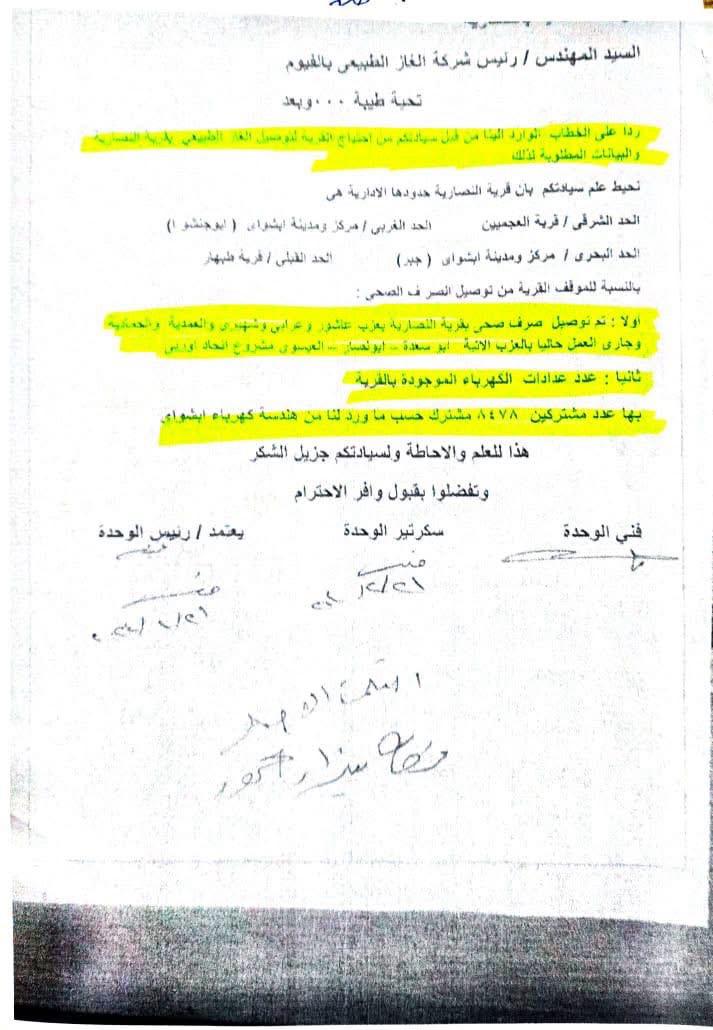 السيد المهندس / رئيس شركة الغاز الطبيعى بالفيوم
تحية طيبة ٠٠٠ وبعد
ردا على الخطاب الوارد الينا من قبل سيادتكم من احتياج القرية لتوصيل الغاز الطبيعي بقرية النصارية
والبيانات المطلوبة لذلك
نحيط علم سيادتكم بان قرية النصارية حدودها الادارية هى
الحد الشرقى / قرية العجميين الحد الغربى / مركز ومدينة ابشواى ( ابوجنشو ا )
الحد البحرى / مركز ومدينة ابشواى ( جبر ) الحد القبلى / قرية طبهار
بالنسبة للموقف القرية من توصيل الصر ف الصحى :
اولا : تم توصيل صرف صحى بقرية النصارية بعزب عاشور وعرابى وشهيرى والعمدية والحمادية
وجارى العمل حاليا بالعزب الاتية ابو سعدة – ابولصار – العيسوى مشروع اتحاد اوربى
ثانيا : عدد عدادات الكهرباء الموجودة بالقرية
بها عدد مشتركين ٨٤٧٨ مشترك حسب ما ورد لنا من هندسة كهرباء ابشواى
هذا للعلم والاحاطة ولسيادتكم جزيل الشكر
وتفضلوا بقبول وافر الاحترام
فني الوحدة سكرتير الوحدة يعتمد / رئيس الوحدة